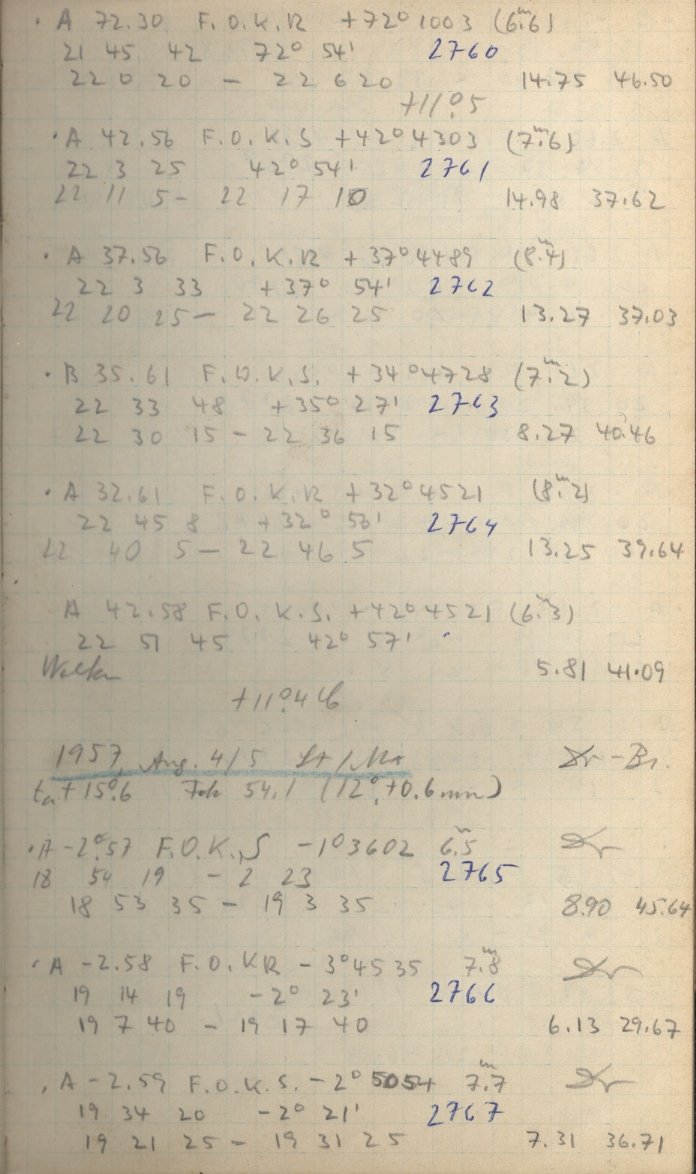 · A 72.30 F.O.K.R +72° 1003 (6ᵐ.6)
21 45 42 72° 54' 2760
22 0 20 - 22 6 20 14.75 46.50
+11°.5
· A 42.56 F.O.K.S +42° 4303 (7ᵐ.6)
22 3 25 42° 54' 2761
22 11 5 - 22 17 10 14.98 37.62
· A 37.56 F.O.K.R +37° 4489 (8ᵐ.4)
22 3 33 +37° 54' 2762
22 20 25 - 22 26 25 13.27 37.03
· B 35.61 F.O.K.S. +34° 4728 (7ᵐ.2)
22 33 48 +35° 27' 2763
22 30 15 - 22 36 15 8.27 40.46
· A 32.61 F.O.K.R +32° 4521 (8ᵐ.2)
22 45 8 +32° 56' 2764
22 40 5 - 22 46 5 13.25 39.64
A 42.58 F.O.K.S. +42° 4521 (6ᵐ.3)
22 51 45 42° 57'
Wolken 5.81 41.09
+11°.46
1957, Aug. 4/5 St/Mo Dr-Br.
ta + 15°.6 Fok 54.1 (12°, +0.6 mm)
· A -2°.57 F.O.K.S -1° 3602 6ᵐ.5 Dr
18 54 19 - 2 23 2765
18 53 35 - 19 3 35 8.90 45.64
· A -2.58 F.O.KR -3° 4535 7ᵐ.8 Dr
19 14 19 -2° 23' 2766
19 7 40 - 19 17 40 6.13 29.67
· A -2.59 F.O.K.S. -2° 5054 7ᵐ.7 Dr
19 34 20 -2° 21' 2767
19 21 25 - 19 31 25 7.31 36.71